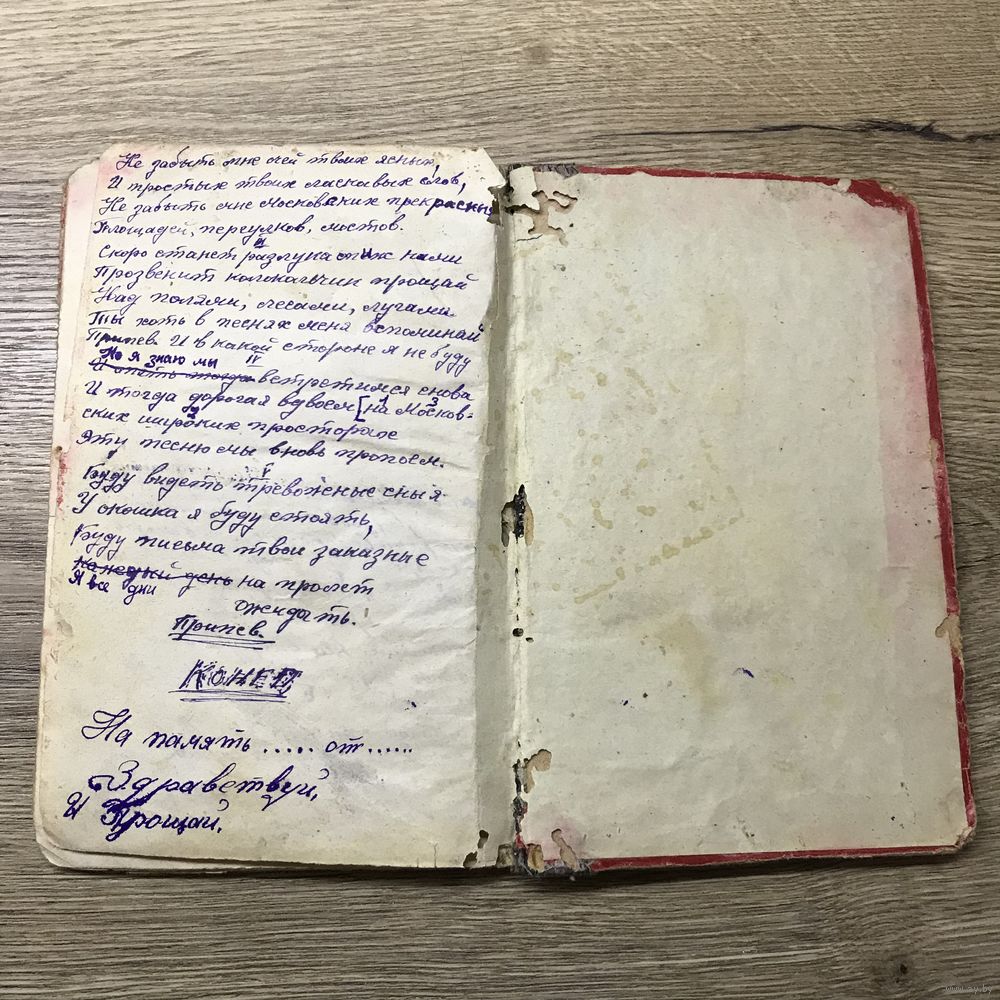 Не забыть мне очей твоих ясных,
И простых твоих ласковых слов,
Не забыть мне московских прекрасных
Площадей, переулков, мостов.
III
Скоро станет разлука меж нами
Прозвенит колокольчик прощай
Над полями, лесами, лугами
Ты хоть в песнях меня вспоминай
Припев. И в какой стороне я не буду
IV
Но я знаю мы
И опять тогда встретимся снова
И тогда дорогая вдвоем [на Москов-
ских широких просторах
Эту песню мы вновь пропоем.
V
Буду видеть тревожные сны я
У окошка я буду стоять,
Буду письма твои заказные
каждый день на пролет
Я все дни
ожидать.
Припев.
КОНЕЦ
На память ..... от......
Здравствуй,
И Прощай.
www.ay.by